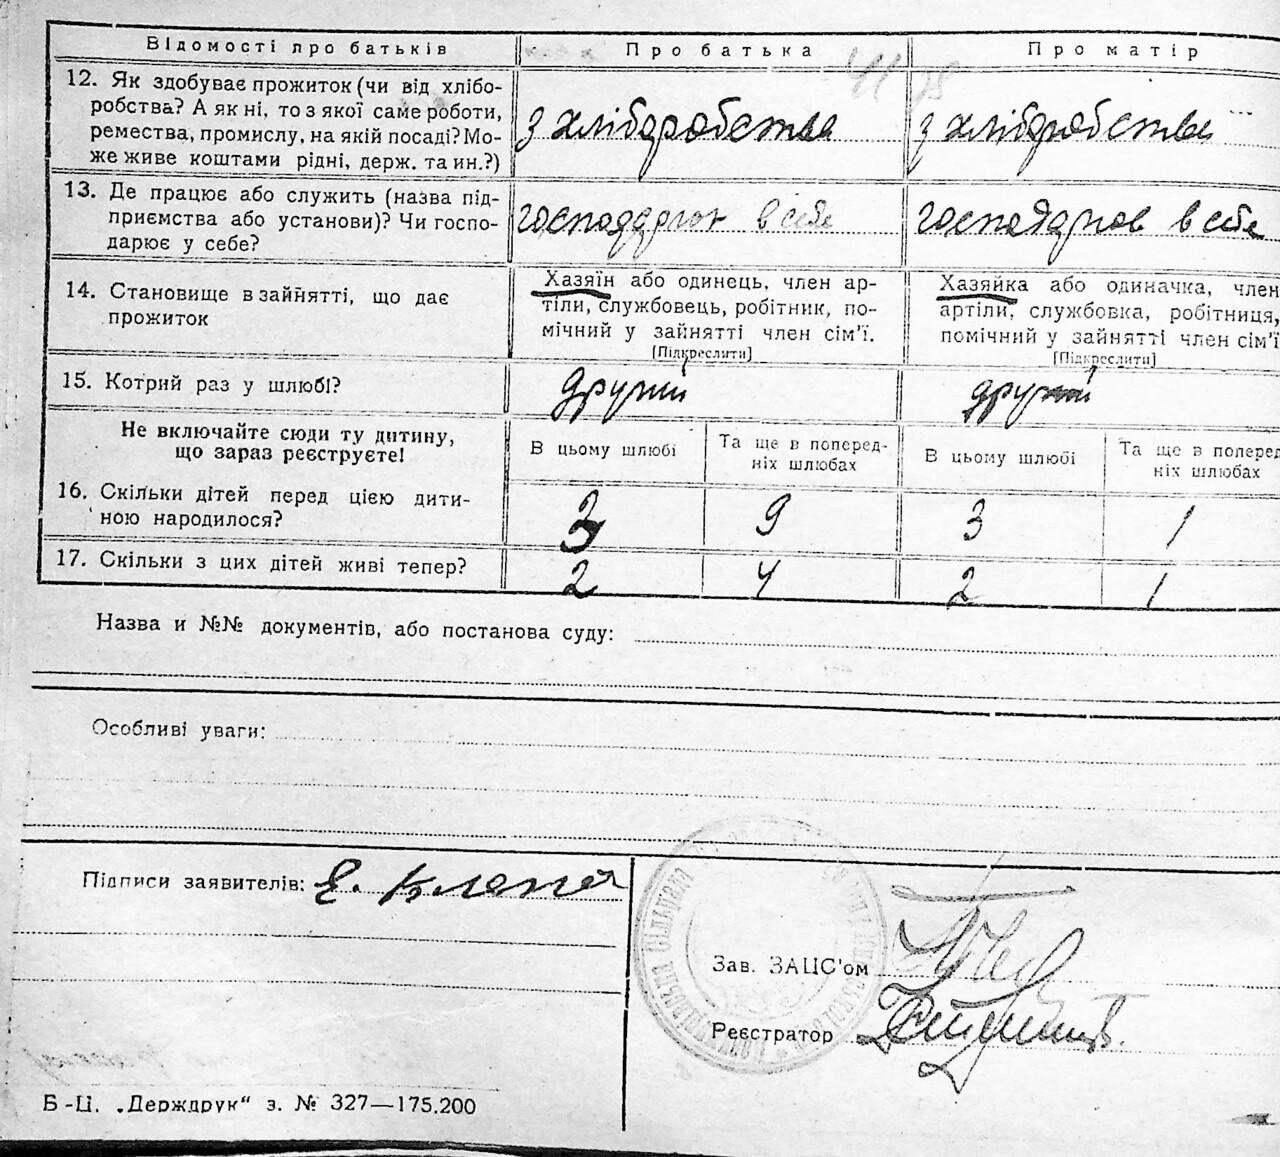 Відомості про батьків Про батька Про матір
12. Як здобуває прожиток (чи від хлібо-
робства? А як ні, то з якої саме роботи,
ремества, промислу, на якій посаді? Мо-
же живе коштами рідні, держ. та ин.?)
з хліборобства з хліборобства
13. Де працює або служить (назва під-
приємства або установи)? Чи госпо-
дарює у себе?
в себе в себе
14. Становище в зайнятті, що дає
прожиток
Хазяїн або одинець, член ар-
тіли, службовець, робітник, по-
мічний у зайнятті член сім'ї.
[Підкреслити]
Хазяйка або одиначка, член
артіли, службовка, робітниця,
помічний у зайнятті член сім'ї
[Підкреслити]
15. Котрий раз у шлюбі?
другий другий
Не включайте сюди ту дитину,
що зараз реєструєте!
В цьому шлюбі Та ще в поперед-
ніх шлюбах
В цьому шлюбі Та ще в поперед
ніх шлюбах
16. Скільки дітей перед цією дити-
ною народилося?
3 9 3 1
17. Скільки з цих дітей живі тепер?
2 4 2 1
Назва и №№ документів, або постанова суду:
Особливі уваги:
Підписи заявителів:
Зав. ЗАЦС'ом
Реєстратор
Б-Ц. „Держдрук“ з. № 327—175.200